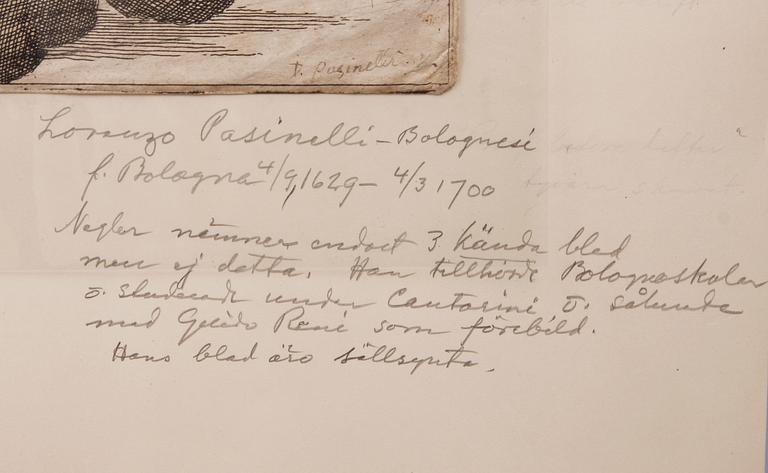 Pasinelli
Lorenzo Pasinelli – Bolognesi
f. Bologna 4/9, 1629 – 4/3 1700
Negler nämner endast 3 kända blad
men ej detta. Han tillhörde Bolognaskolan
o. studerade under Cantarini o. sålunda
med Guido Reni som förebild.
Hans blad äro sällsynta.